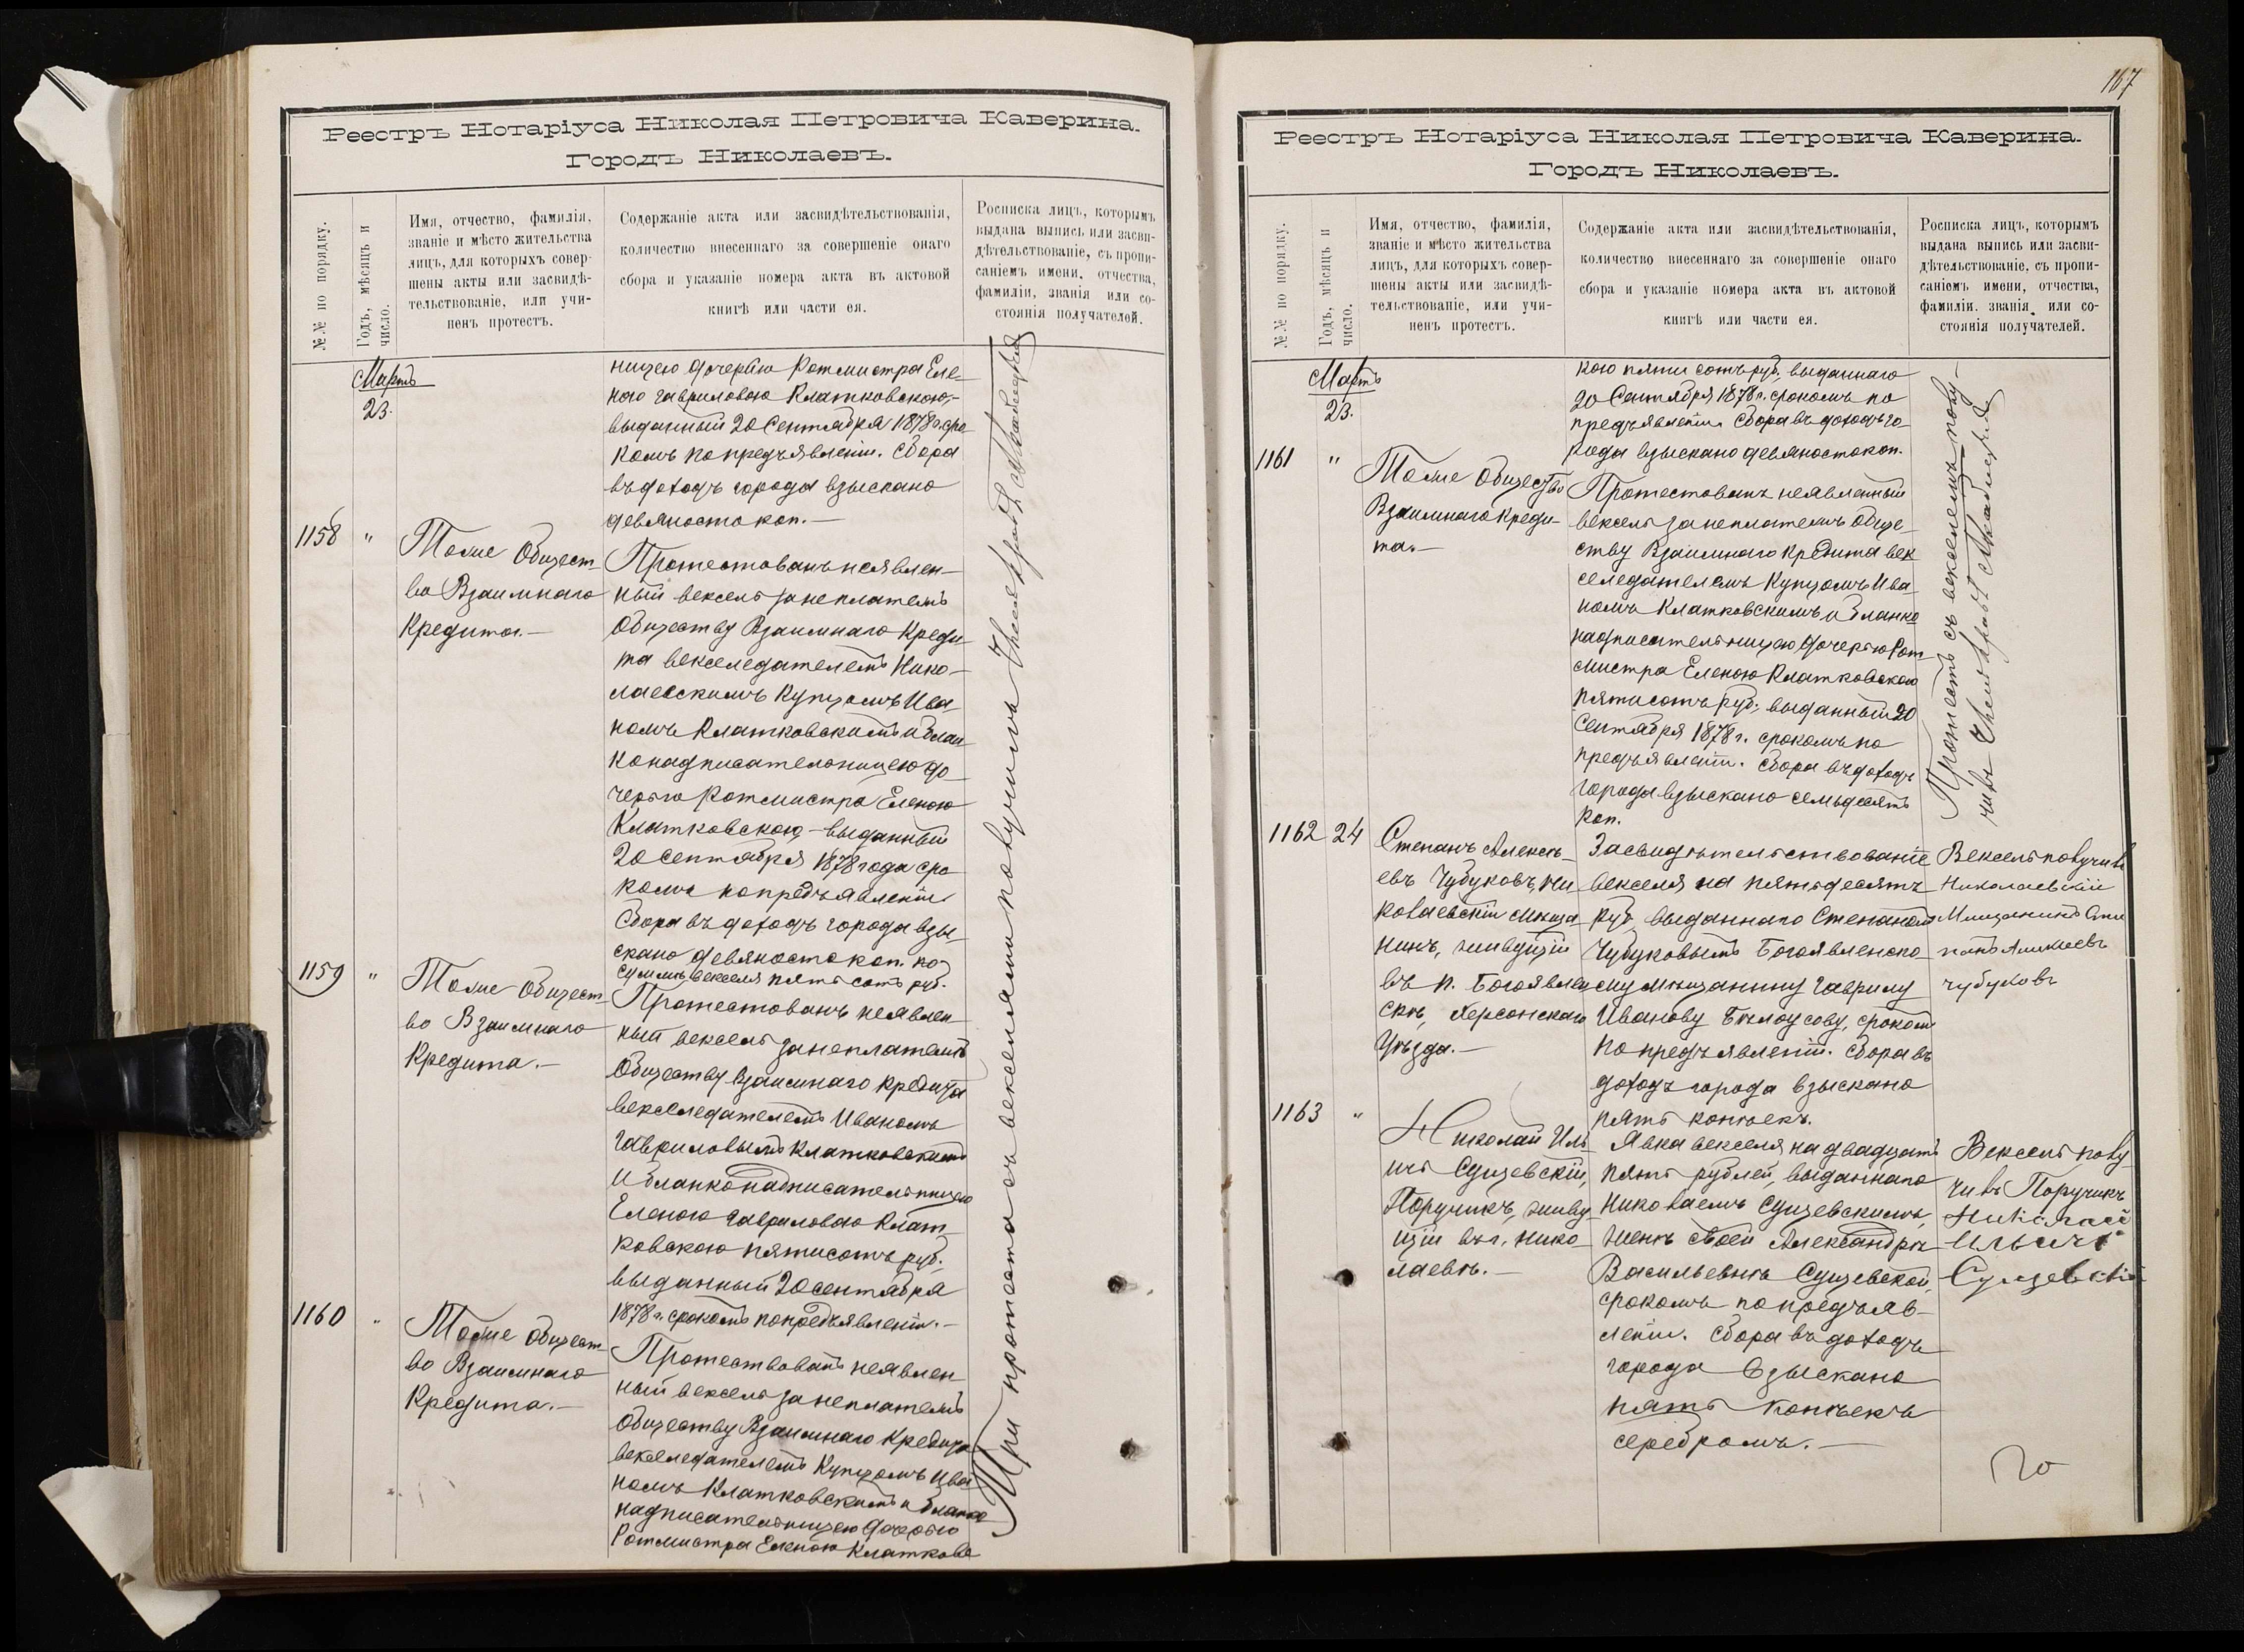 Реестръ Нотаріуса Николая Петровича Каверина.
Городъ Николаевъ.
№№ по порядку.
Годъ, мѣсяцъ и
число.
Имя, отчество, фамилія,
званіе и мѣсто жительства
лицъ, для которыхъ совер-
шены акты или засвидѣ-
тельствованіе, или учи-
ненъ протестъ.
Содержаніе акта или засвидѣтельствованія,
количество внесеннаго за совершеніе онаго
сбора и указаніе номера акта въ актовой
книгѣ или части ея.
Росписка лицъ, которымъ
выдана выпись или засви-
дѣтельствованіе, съ пропи-
саніемъ имени, отчества,
фамиліи, званія или со-
стоянія получателей.
Мартъ
23.
ницею дочерью Ротмистра Еле-
ною Гавриловою Клатковскою,-
выданный 20 Сентября 1878 г. сро-
комъ по предъявленіи. Сбора
въ доходъ города взыскано
девяносто коп.—
1158 "
Тоже Общест-
во Взаимнаго
Кредита.—
Протестованъ неявлен-
ный вексель за неплатежъ
Обществу Взаимнаго Креди-
та векселедателемъ Нико-
лаевскимъ Купцомъ Ива-
номъ Клатковскимъ и блан-
конадписательницею до-
черью Ротмистра Еленою
Клатковскою,-выданный
20 сентября 1878 года сро-
комъ по предъявленіи
Сбора въ доходъ города взы-
скано девяносто коп. по
суммѣ векселя пять сотъ руб.
1159 "
Тоже Общест-
во Взаимнаго
Кредита.—
Протестованъ неявлен-
ный вексель за неплатежъ
Обществу Взаимнаго Кредита
векселедателемъ Иваномъ
Гавриловымъ Клатковскимъ
и бланконадписательницею
Еленою Гавриловою Клат-
ковскою пятисотъ руб.
выданный 20 сентября
1878 г. срокомъ по предъявленіи.—
1160 "
Тоже Общест-
во Взаимнаго
Кредита.—
Протествованъ неявлен
ный вексель за неплатежъ
Обществу Взаимнаго Кредита
векселедателемъ Купцомъ Ива
номъ Клатковскимъ и бланко
надписательницею дочерью
Ротмистра Еленою Клатковс
Три протеста съ векселями получилъ
167
Реестръ Нотаріуса Николая Петровича Каверина.
Городъ Николаевъ.
№№ по порядку.
Годъ, мѣсяцъ и
число.
Имя, отчество, фамилія,
званіе и мѣсто жительства
лицъ, для которыхъ совер-
шены акты или засвидѣ-
тельствованіе, или учи-
ненъ протестъ.
Содержаніе акта или засвидѣтельствованія,
количество внесеннаго за совершеніе онаго
сбора и указаніе номера акта въ актовой
книгѣ или части ея.
Росписка лицъ, которымъ
выдана выпись или засви-
дѣтельствованіе, съ пропи-
саніемъ имени, отчества,
фамиліи, званія, или со-
стоянія получателей.
Мартъ
23.
кою пяти сотъ руб., выданнаго
20 Сентября 1878 г. срокомъ по
предъявленіи. Сбора въ доходъ го-
рода взыскано девяносто коп.
1161 "
Тоже Общество
Взаимнаго Креди-
та.—
Протестованъ неявленный
вексель за неплатежъ Обще-
ству Взаимнаго Кредита век
селедателемъ Купцомъ Ива
номъ Клатковскимъ и бланко
надписательницею дочерью Рот-
мистра Еленою Клатковскою
пятисотъ руб., выданный 20
Сентября 1878 г. срокомъ по
предъявленіи. Сбора въ доходъ
города взыскано семьдесятъ
коп.
Протестъ съ векселемъ полу-
чилъ
1162 24
Степанъ Алексѣ-
евъ Чубуковъ, Ни
колаевскій мѣща
нинъ, живущій
въ п. Богоявлен
скѣ, Херсонскаго
Уѣзда.—
Засвидѣтельствованіе
векселя на пятьдесятъ
руб. выданнаго Степаномъ
Чубуковымъ Богоявленско-
му мѣщанину Гаврилу
Иванову Бѣлоусову, срокомъ
по предъявленіи. Сбора въ
доходъ города взыскано
пять копѣекъ.
Вексель получилъ
Николаевскій
Мищанинъ Сти
панъ Аликсеевъ
Чубуковъ
1163 "
Николай Иль-
ичъ Сущевскій,
Поручикъ, живу-
щій въ г. Нико-
лаевѣ.—
Явка векселя на двадцать
пять рублей, выданнаго
Николаемъ Сущевскимъ,
женѣ своей Александрѣ
Васильевнѣ Сущевской,
срокомъ по предъяв-
леніи. Сбора въ доходъ
города взыскано
пять копѣекъ
серебромъ.—
Вексель полу-
чилъ Поручикъ
Николай
Ильичъ
Сущевскій